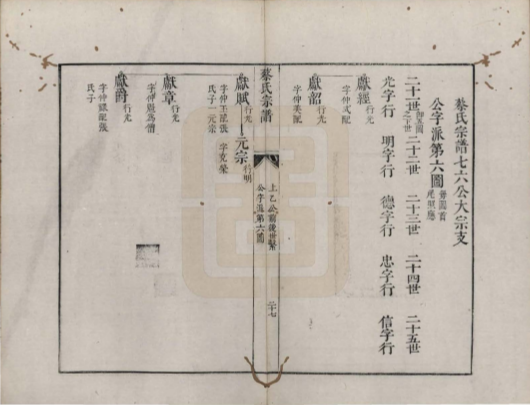 蔡氏宗譜七六公大宗支
公字派第六圖
二十一世 二十二世 二十三世 二十四世 二十五世
光字行 明字行 德字行 忠字行 信字行
獻經 行光
字仲文配
獻韶 行光
字仲美配
蔡氏宗譜
上乙公前後世繫
公字派第六圖
二十七
獻賦 行光 元宗 行明
字仲玉配張 字克榮
氏子一元宗
獻章 行光
字仲賢為僧
獻爵 行光
字仲銀配張
氏子